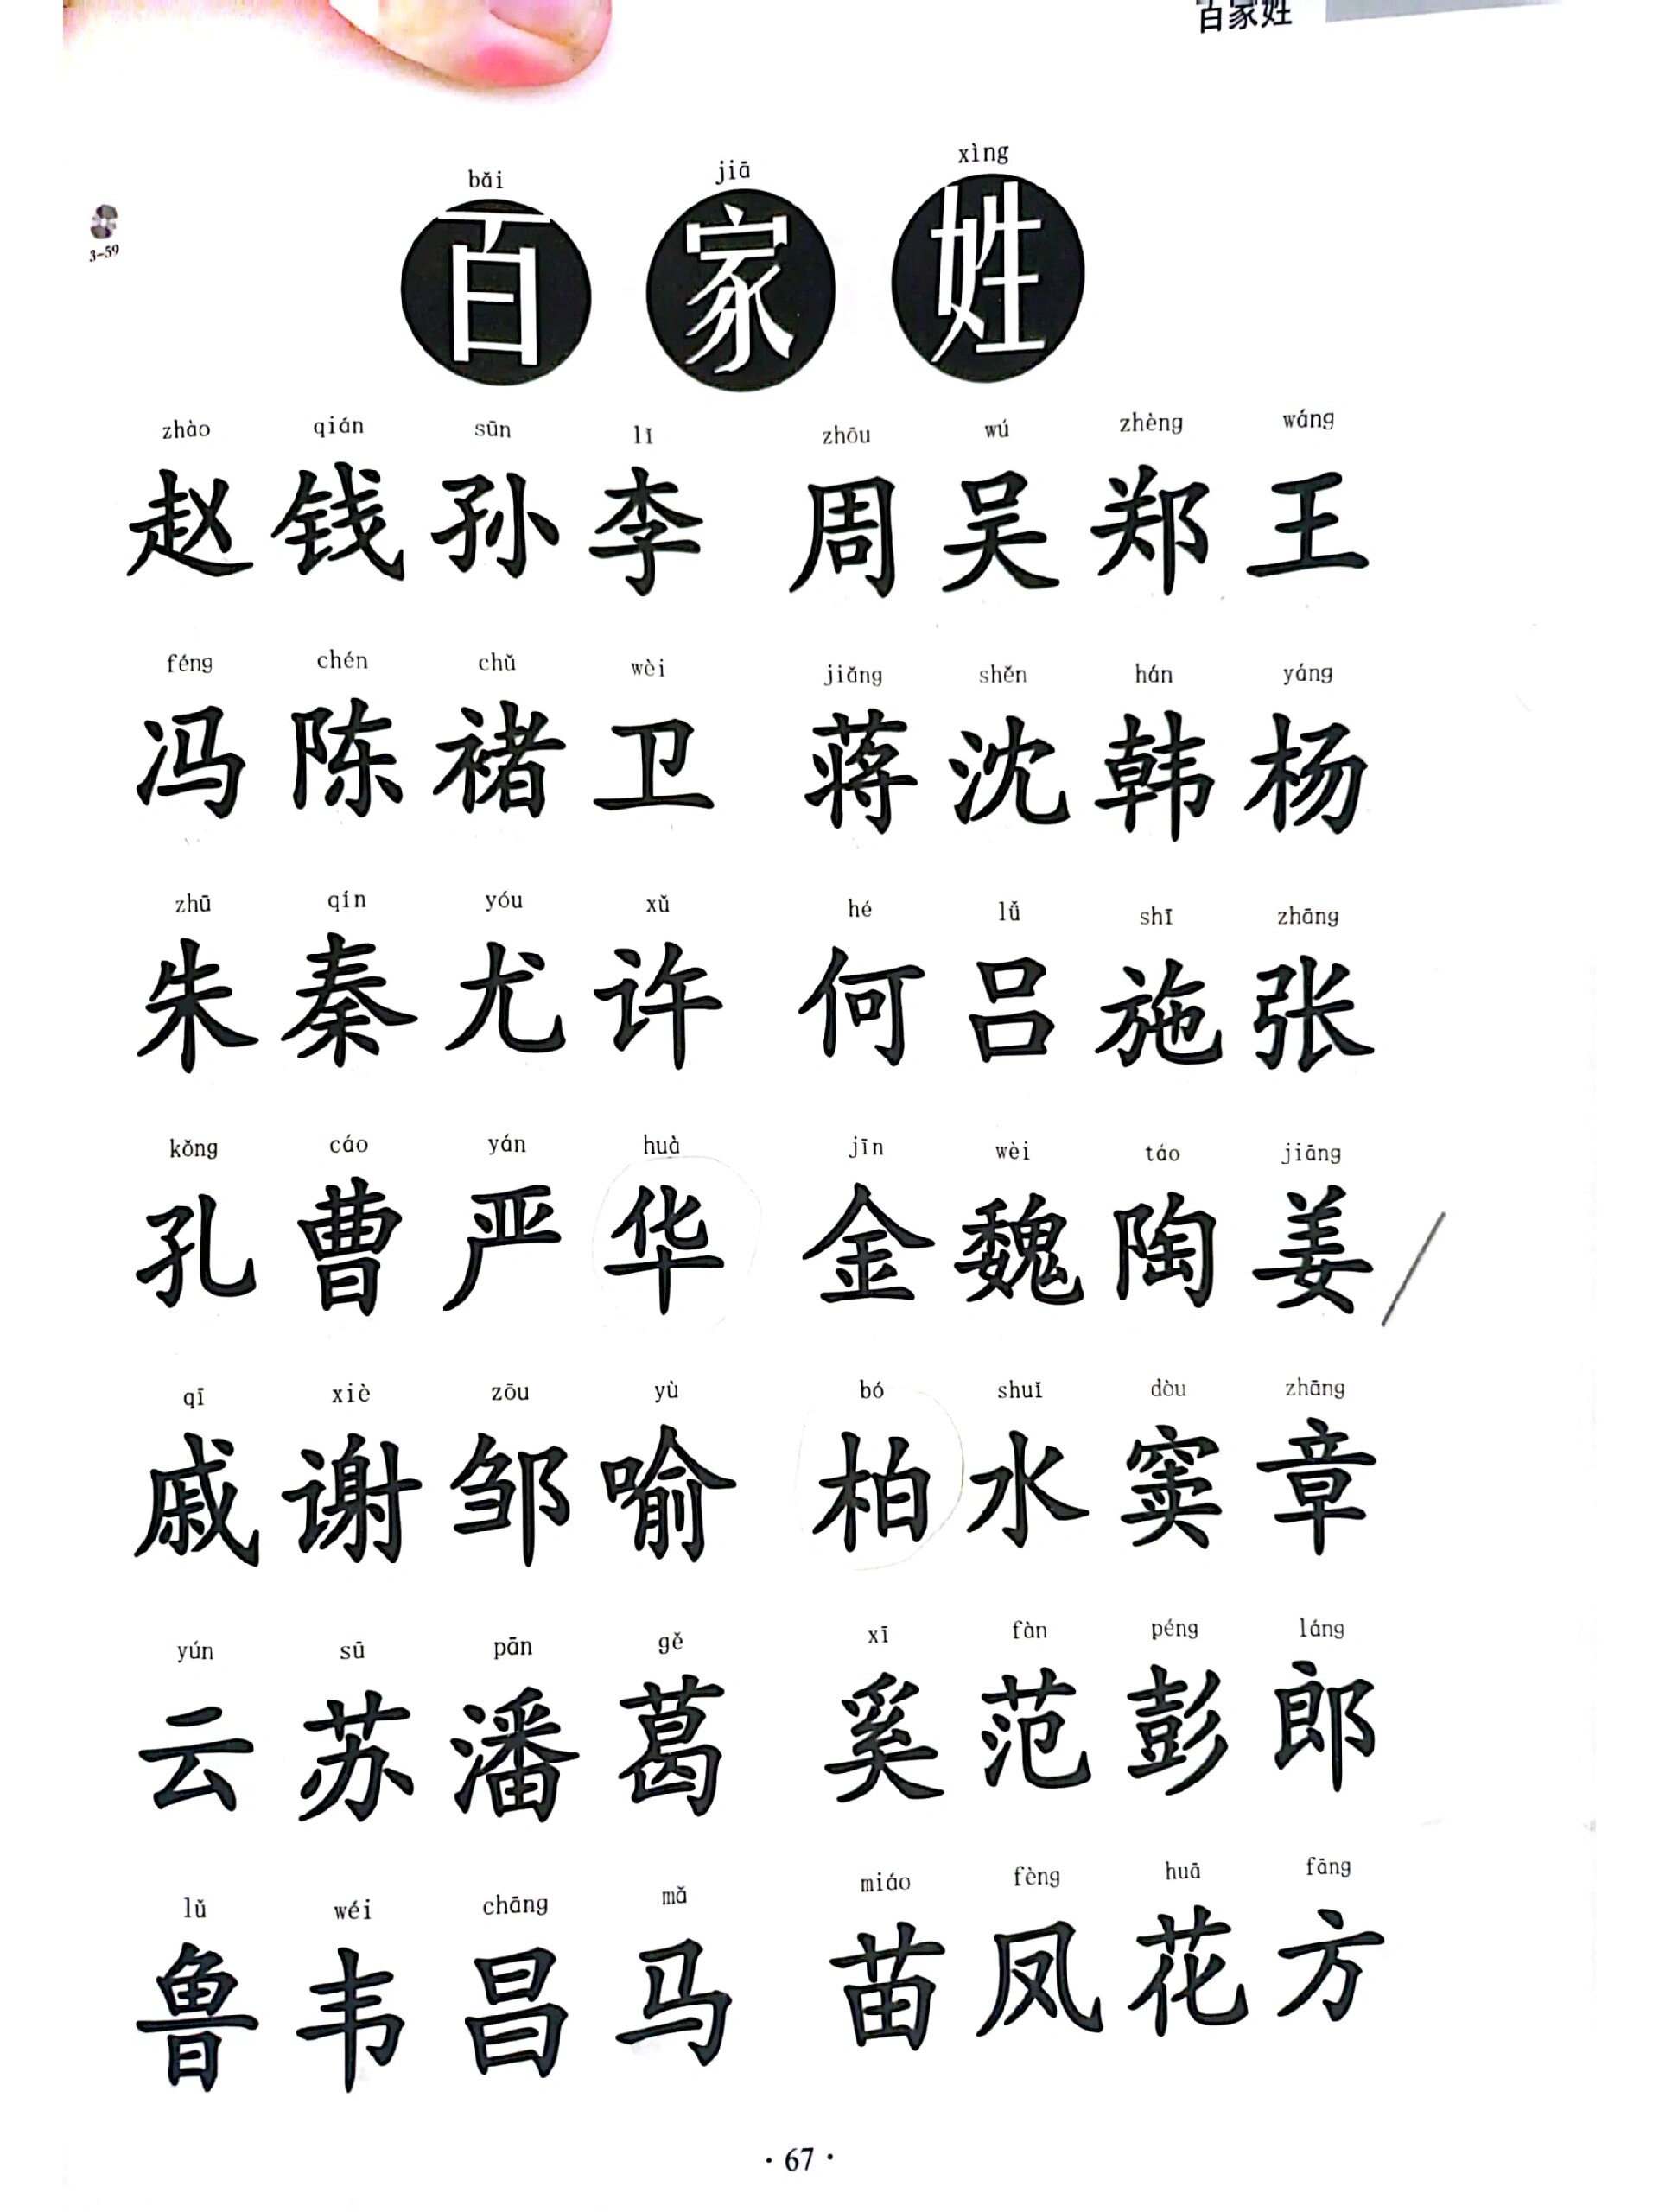 百家姓
bǎi jiā xìng
百 家 姓
3-59
zhào qián sūn lǐ zhōu wú zhèng wáng
赵 钱 孙 李 周 吴 郑 王
féng chén chǔ wèi jiǎng shěn hán yáng
冯 陈 褚 卫 蒋 沈 韩 杨
zhū qín yóu xǔ hé lǚ shī zhāng
朱 秦 尤 许 何 吕 施 张
kǒng cáo yán huà jīn wèi táo jiāng
孔 曹 严 华 金 魏 陶 姜
qī xiè zōu yù bó shuǐ dòu zhāng
戚 谢 邹 喻 柏 水 窦 章
yún sū pān gě xī fàn péng láng
云 苏 潘 葛 奚 范 彭 郎
lǔ wéi chāng mǎ miáo fèng huā fāng
鲁 韦 昌 马 苗 凤 花 方
· 67 ·